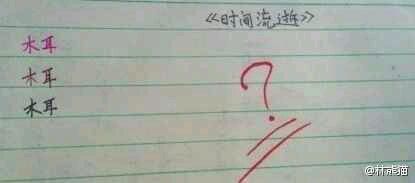 《时间流逝》
木耳
木耳
木耳
?
@林熊猫